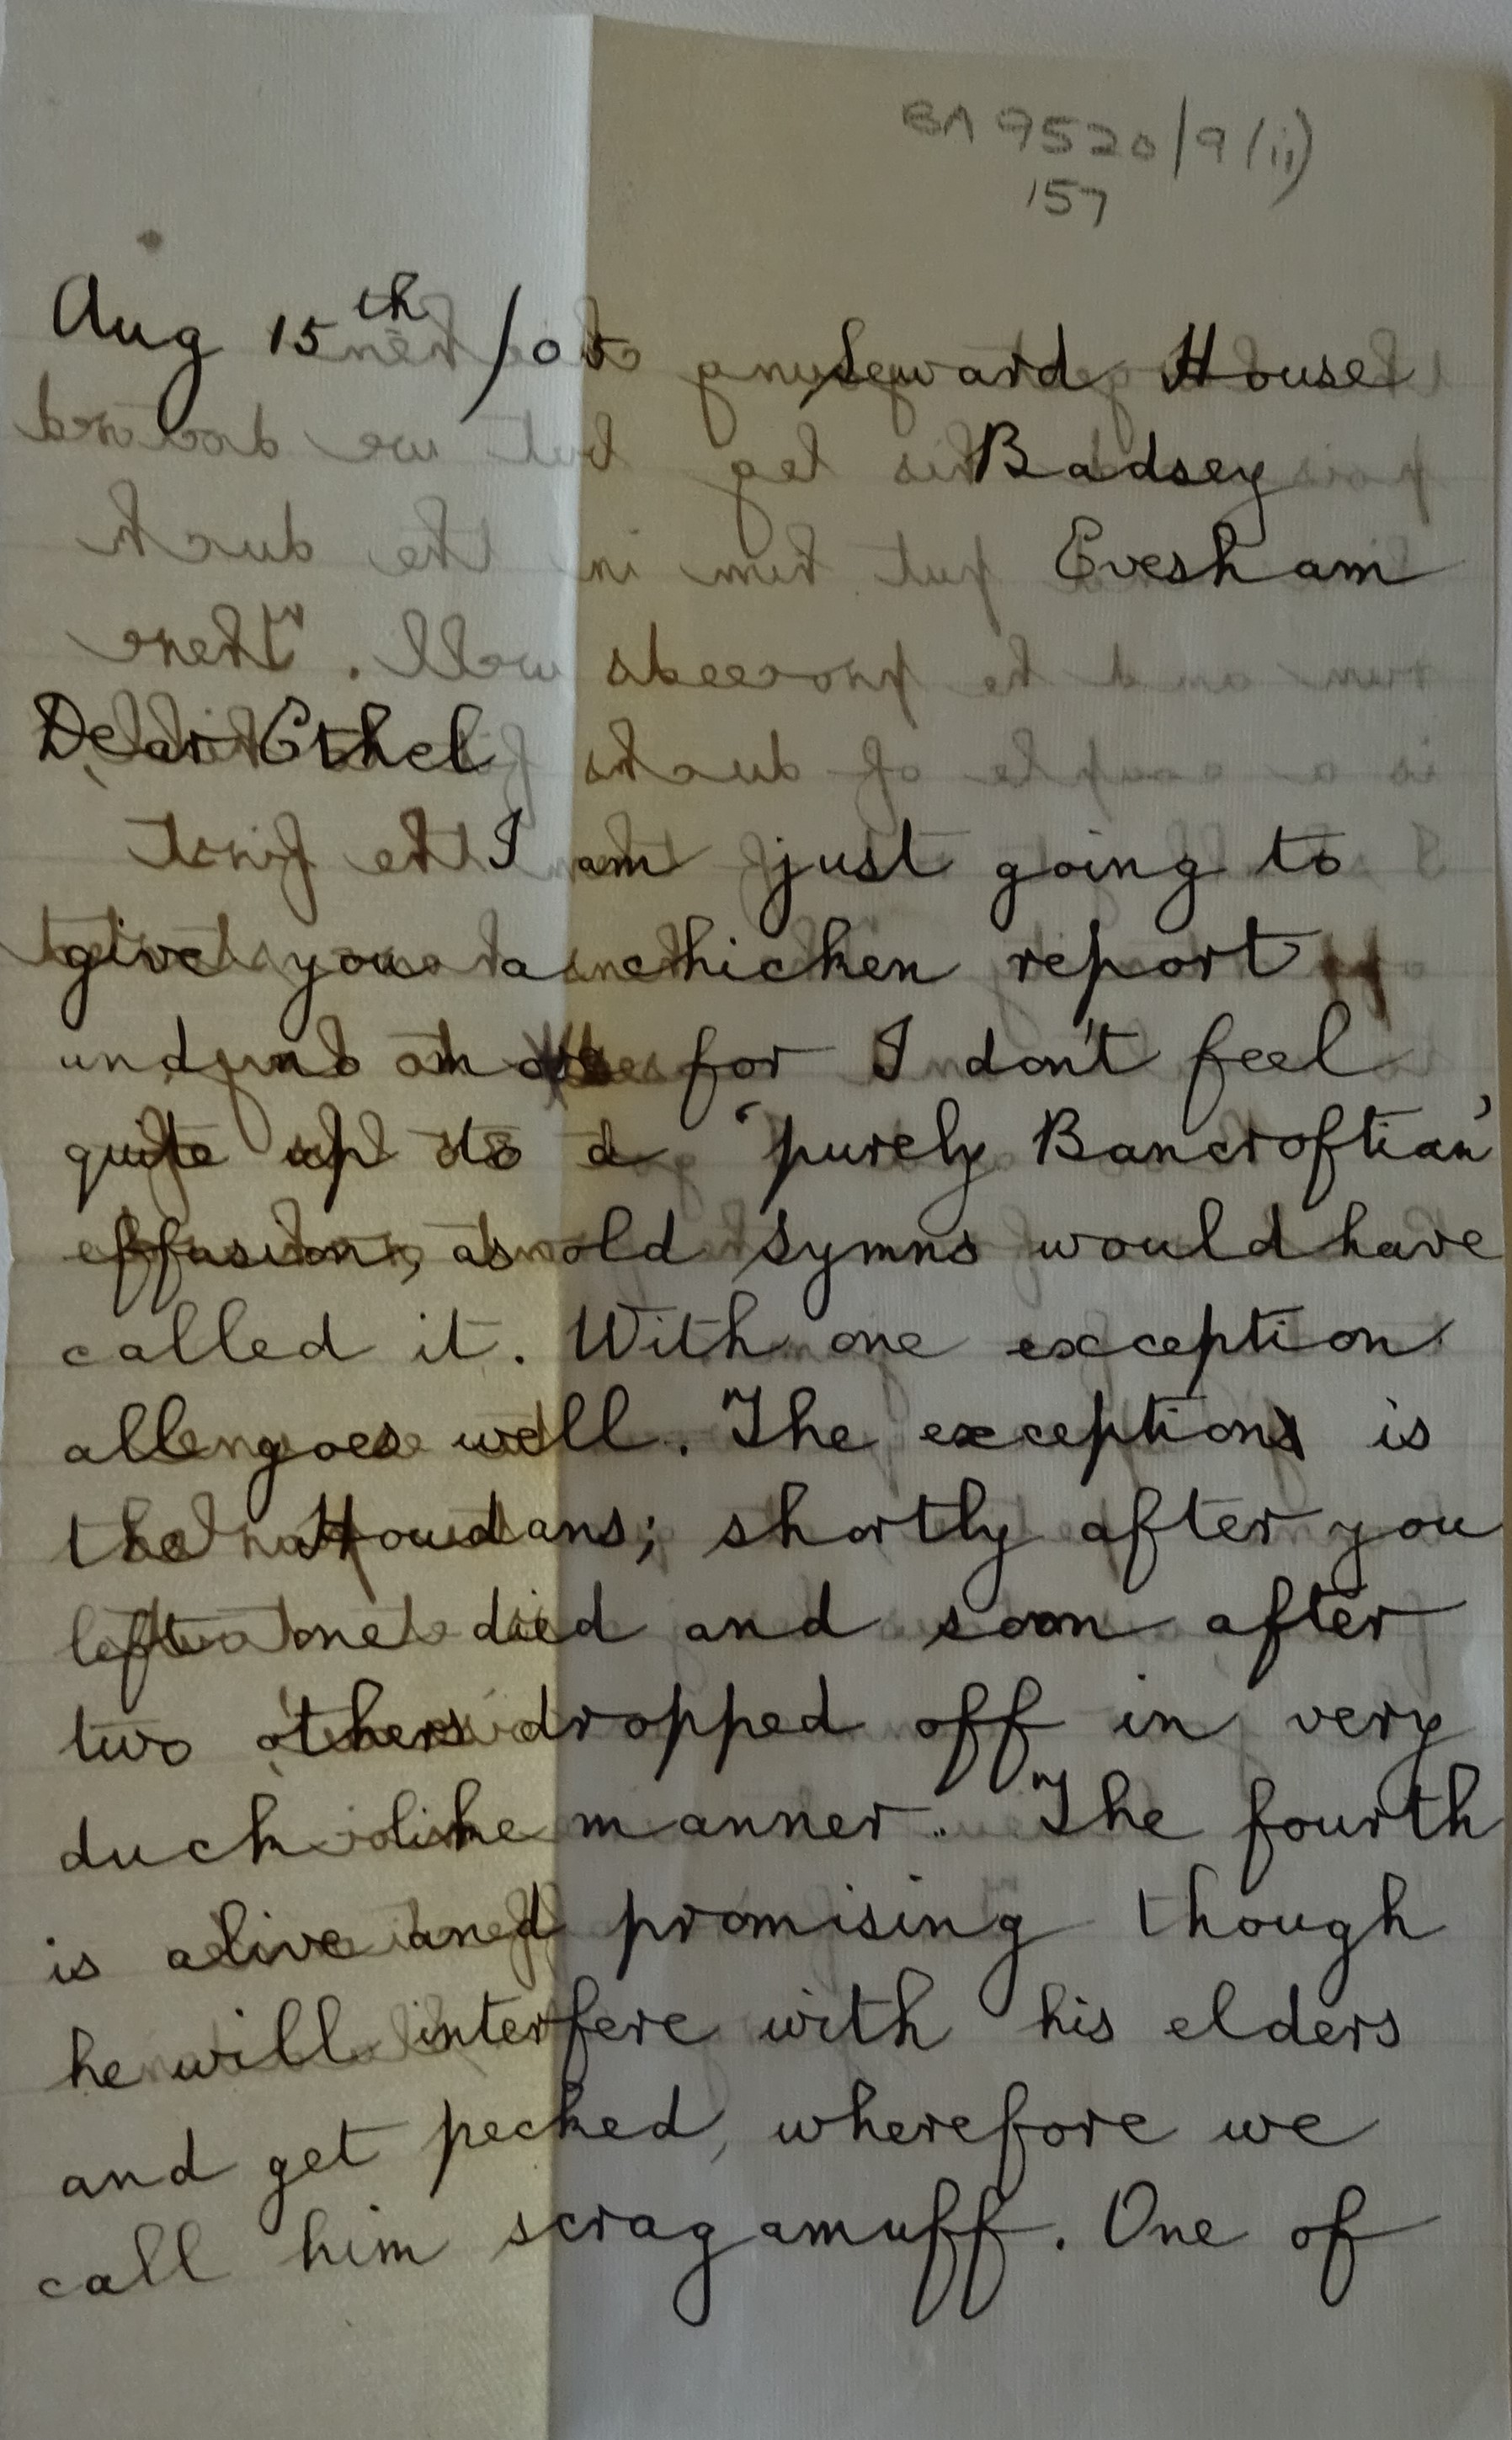 BA 9520/9(ii)
157
Aug 15th /05
Seward House
Badsey
Evesham
Dear Ethel
I am just going to
give you a chicken report
and no more for I don't feel
quite up to a 'purely Bancroftian'
effusion, as old Symns would have
called it. With one exception
all goes well. The exception is
the Houdans; shortly after you
left one died and soon after
two others dropped off in very
duck like manner. The fourth
is alive and promising though
he will interfere with his elders
and get pecked, wherefore we
call him scragamuff. One of